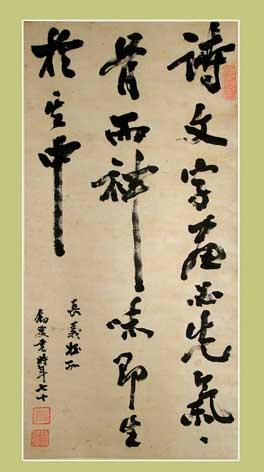 詩文字畫必先氣、
骨而神味即生
於其中
長義姪
叟書時年七十